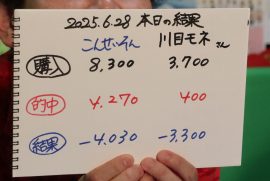 2025.6.28 本日の結果
こんせいそん 川目モネさん
購入 8,300 3,700
的中 4,270 400
結果 -4,030 -3,300